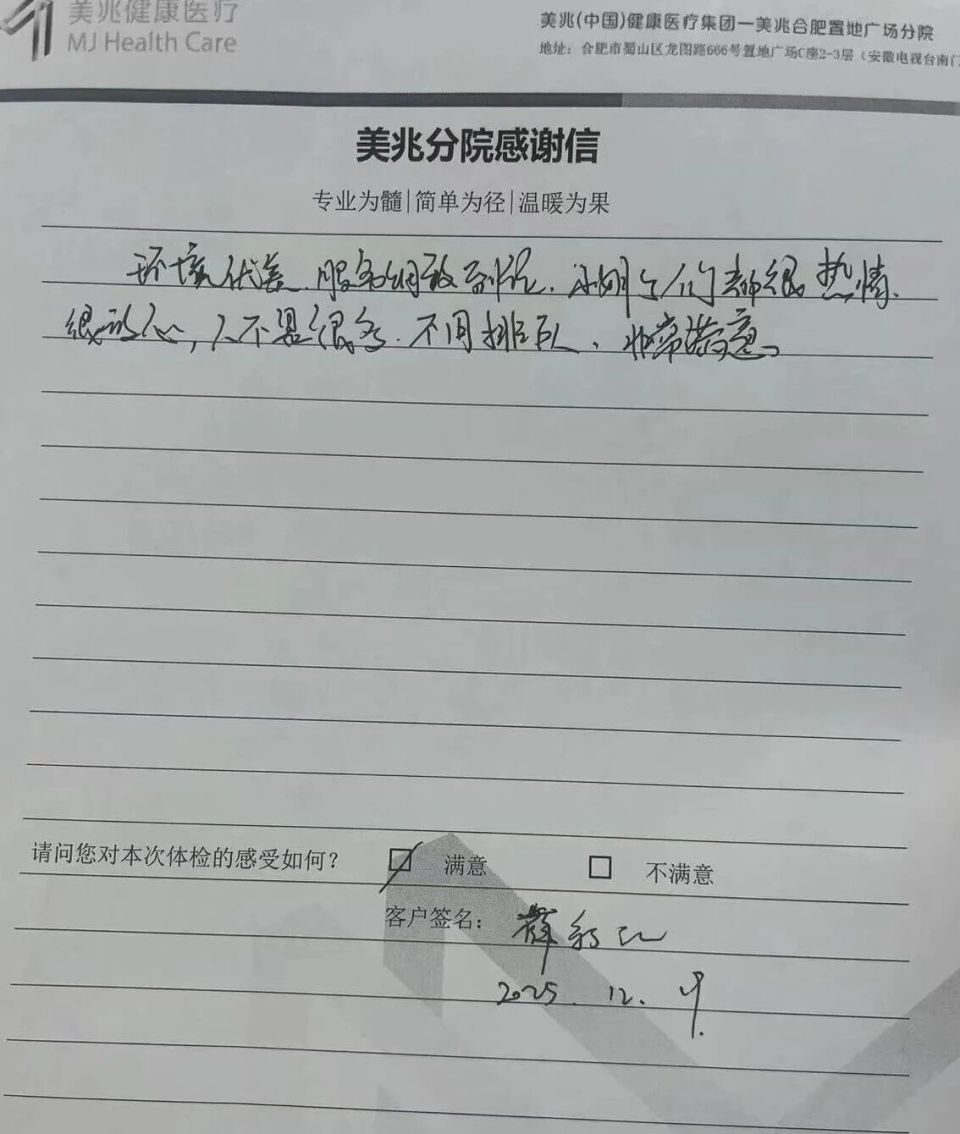 美兆健康医疗
MJ Health Care
美兆(中国)健康医疗集团一美兆合肥置地广场分院
地址：合肥市蜀山区龙图路666号置地广场C座2-3层（安徽电视台南门
美兆分院感谢信
专业为髓|简单为径|温暖为果
环境优美，服务细致到位，小姐姐们都很热情，
很放心，人不是很多，不用排队，非常满意。
请问您对本次体检的感受如何？ 满意 不满意
客户签名：薛
2025.12.